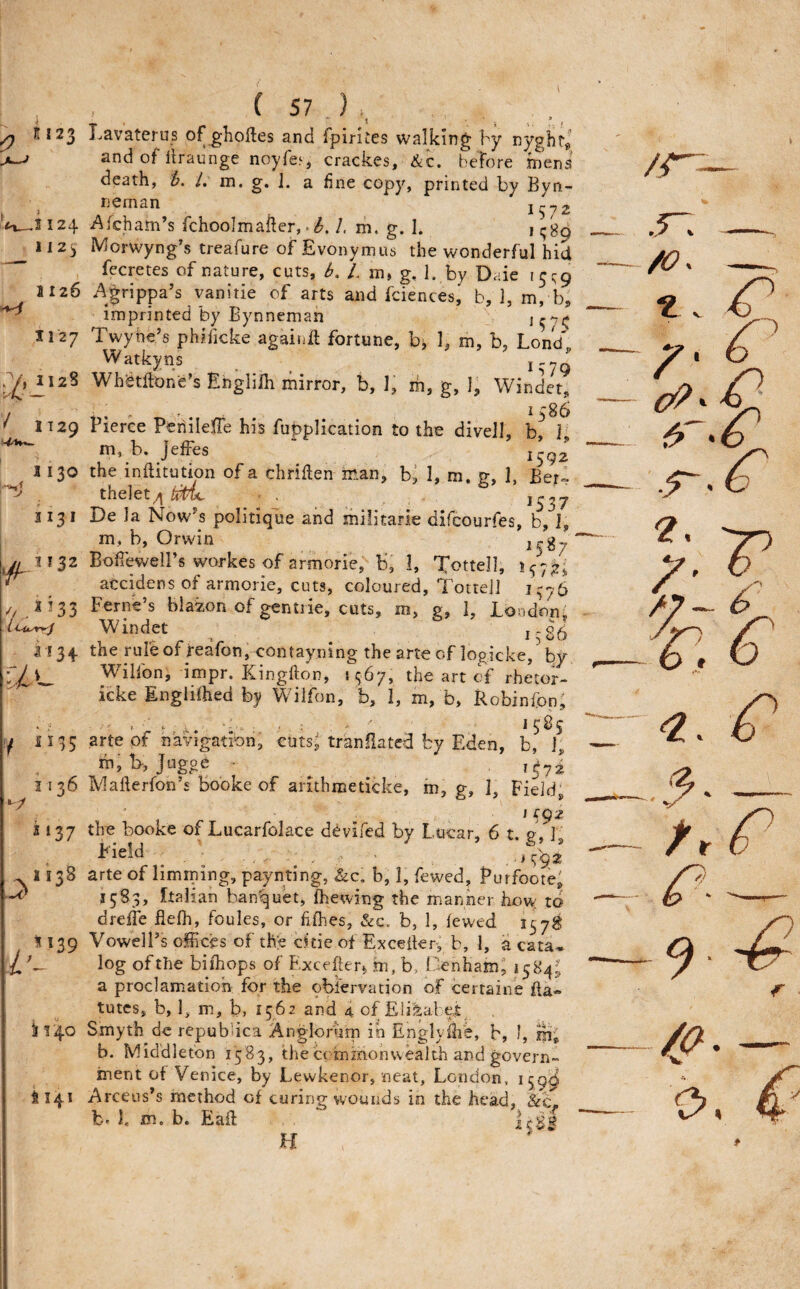 ( 57 )
1123 Lavaterus of ghoſtes and ſpirites walking by nyght, 15 —
and of ſtraunge noyſes, crackes, &c. before mens
death, b. l. m. g. l. a fine copy, printed by Byn-
neman 1572
1124 Aſcham's ſchoolmaſter, b. l. m. g. l. 1589 — 5. —
1125 Morwyng's treaſure of Evonymus the wonderful hid — 10. —
ſecretes of nature, cuts, b. l. m, g. l. by Daie 1559
1126 Agrippa's vanitie of arts and ſciences, b, l, m, b, — 2. 6
imprinted by Bynneman 1575
1127 Twyne's phiſicke againſt fortune, b, l, m, b, Lond, — 7. 6
Watkyns 1579
1128 Whetſtone's Engliſh mirror, b, l, m, g, l, Windet, — 9. 6
1586
1129 Pierce Penileſſe his ſupplication to the divell, b, l, — 5. 6
m, b. Jeffes 1592
1130 the inſtitution of a chriſten man, b, l, m. g, l, Ber- — 5. 6
thelet 1537
1131 De la Now's politique and militarie diſcourſes, b, l, 2.
m, b, Orwin 1587
1132 Boſſewell's workes of armorie, b, l, Tottell, 1572, 7. 6
accidens of armorie, cuts, coloured, Tottell 1576
1133 Ferne's blazon of gentrie, cuts, m, g, l, London, 6
Windet 1586
1134 the rule of reaſon, contayning the arte of logicke, by — 6. 6
Wilſon, impr. Kingſton, 1567, the art of rhetor-
icke Engliſhed by Wilſon, b, l, m, b, Robinſon,
1585
1135 arte of navigation, cuts, tranſlated by Eden, b, l, — 2. 6
m, b, Jugge 1572
1136 Maſterſon's booke of arithmeticke, m, g, l, Field, — 3. —
1592
1137 the booke of Lucarſolace deviſed by Lucar, 6 t. g, l, — 1. 6
Field 1592
1138 arte of limming, paynting, &c. b, l, ſewed, Purfoote, — 6 —
1583, Italian banquet, ſhewing the manner how to
dreſſe fleſh, foules, or fiſhes, &c. b, l, ſewed 1578
1139 Vowell's offices of the citie of Exceſter, b, l, a cata- — 9. 6
log of the biſhops of Exceſter, m, b, Denham, 1584,
a proclamation for the obſervation of certaine ſta-
tutes, b, l, m, b, 1562 and 4 of Elizabet
1140 Smyth de republica Anglorum in Englyſhe, b, l, m, — 10. —
b. Middleton 1583, the commonwealth and govern-
ment of Venice, by Lewkenor, neat, London, 1599
1141 Arceus's method of curing wounds in the head, &c, — 3. 6
b. l. m. b. Eaſt 1588
H